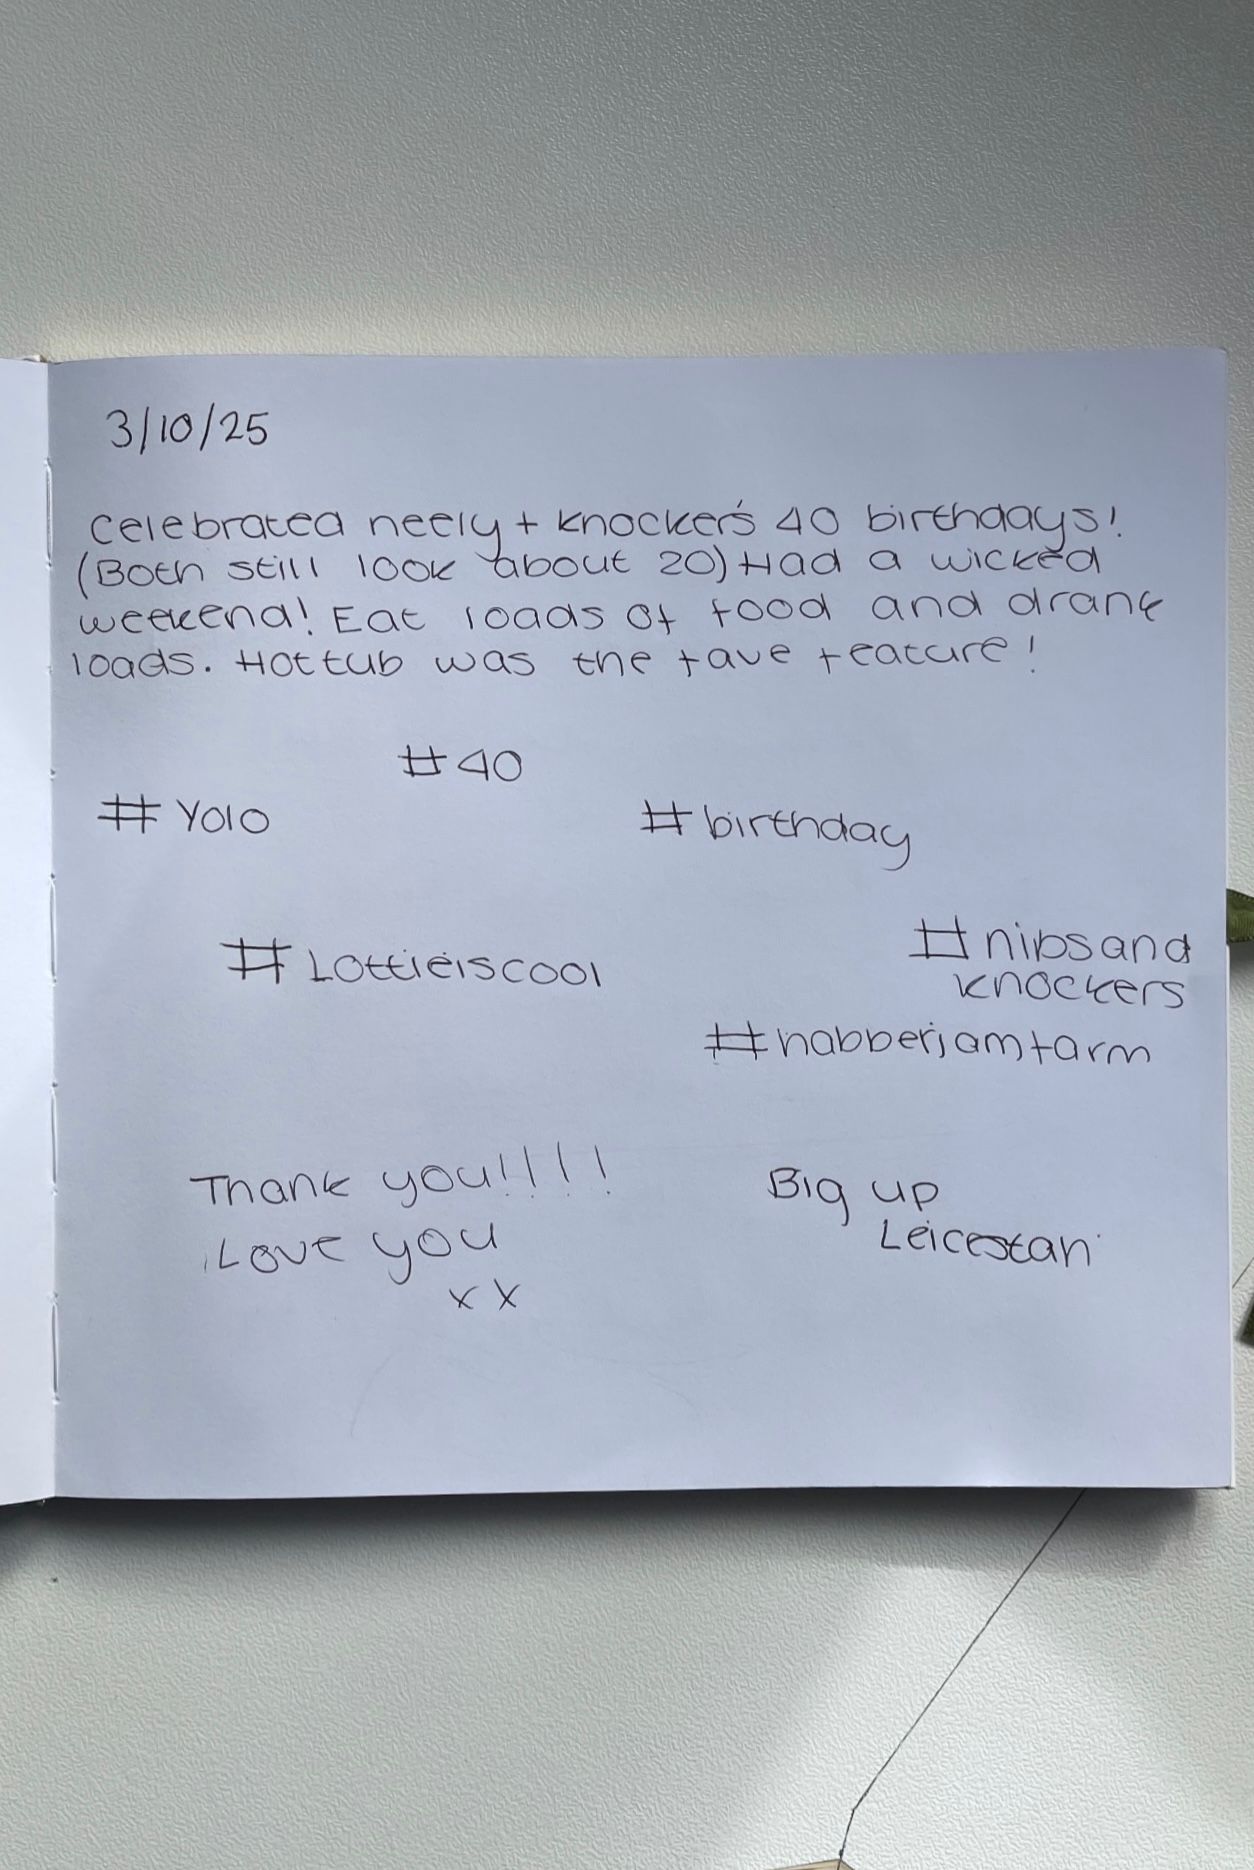 3/10/25
Celebrated neely + Knocker's 40 birthdays!
(Both still look about 20) Had a wicked
weekend! Eat loads of food and drank
loads. Hot tub was the fave feature!
#40
#Yolo
#birthday
#Lottieiscool
#nibsand
knockers
#habberjamfarm
Thank you!!!!!
Love you
xx
Big up
Leicestan